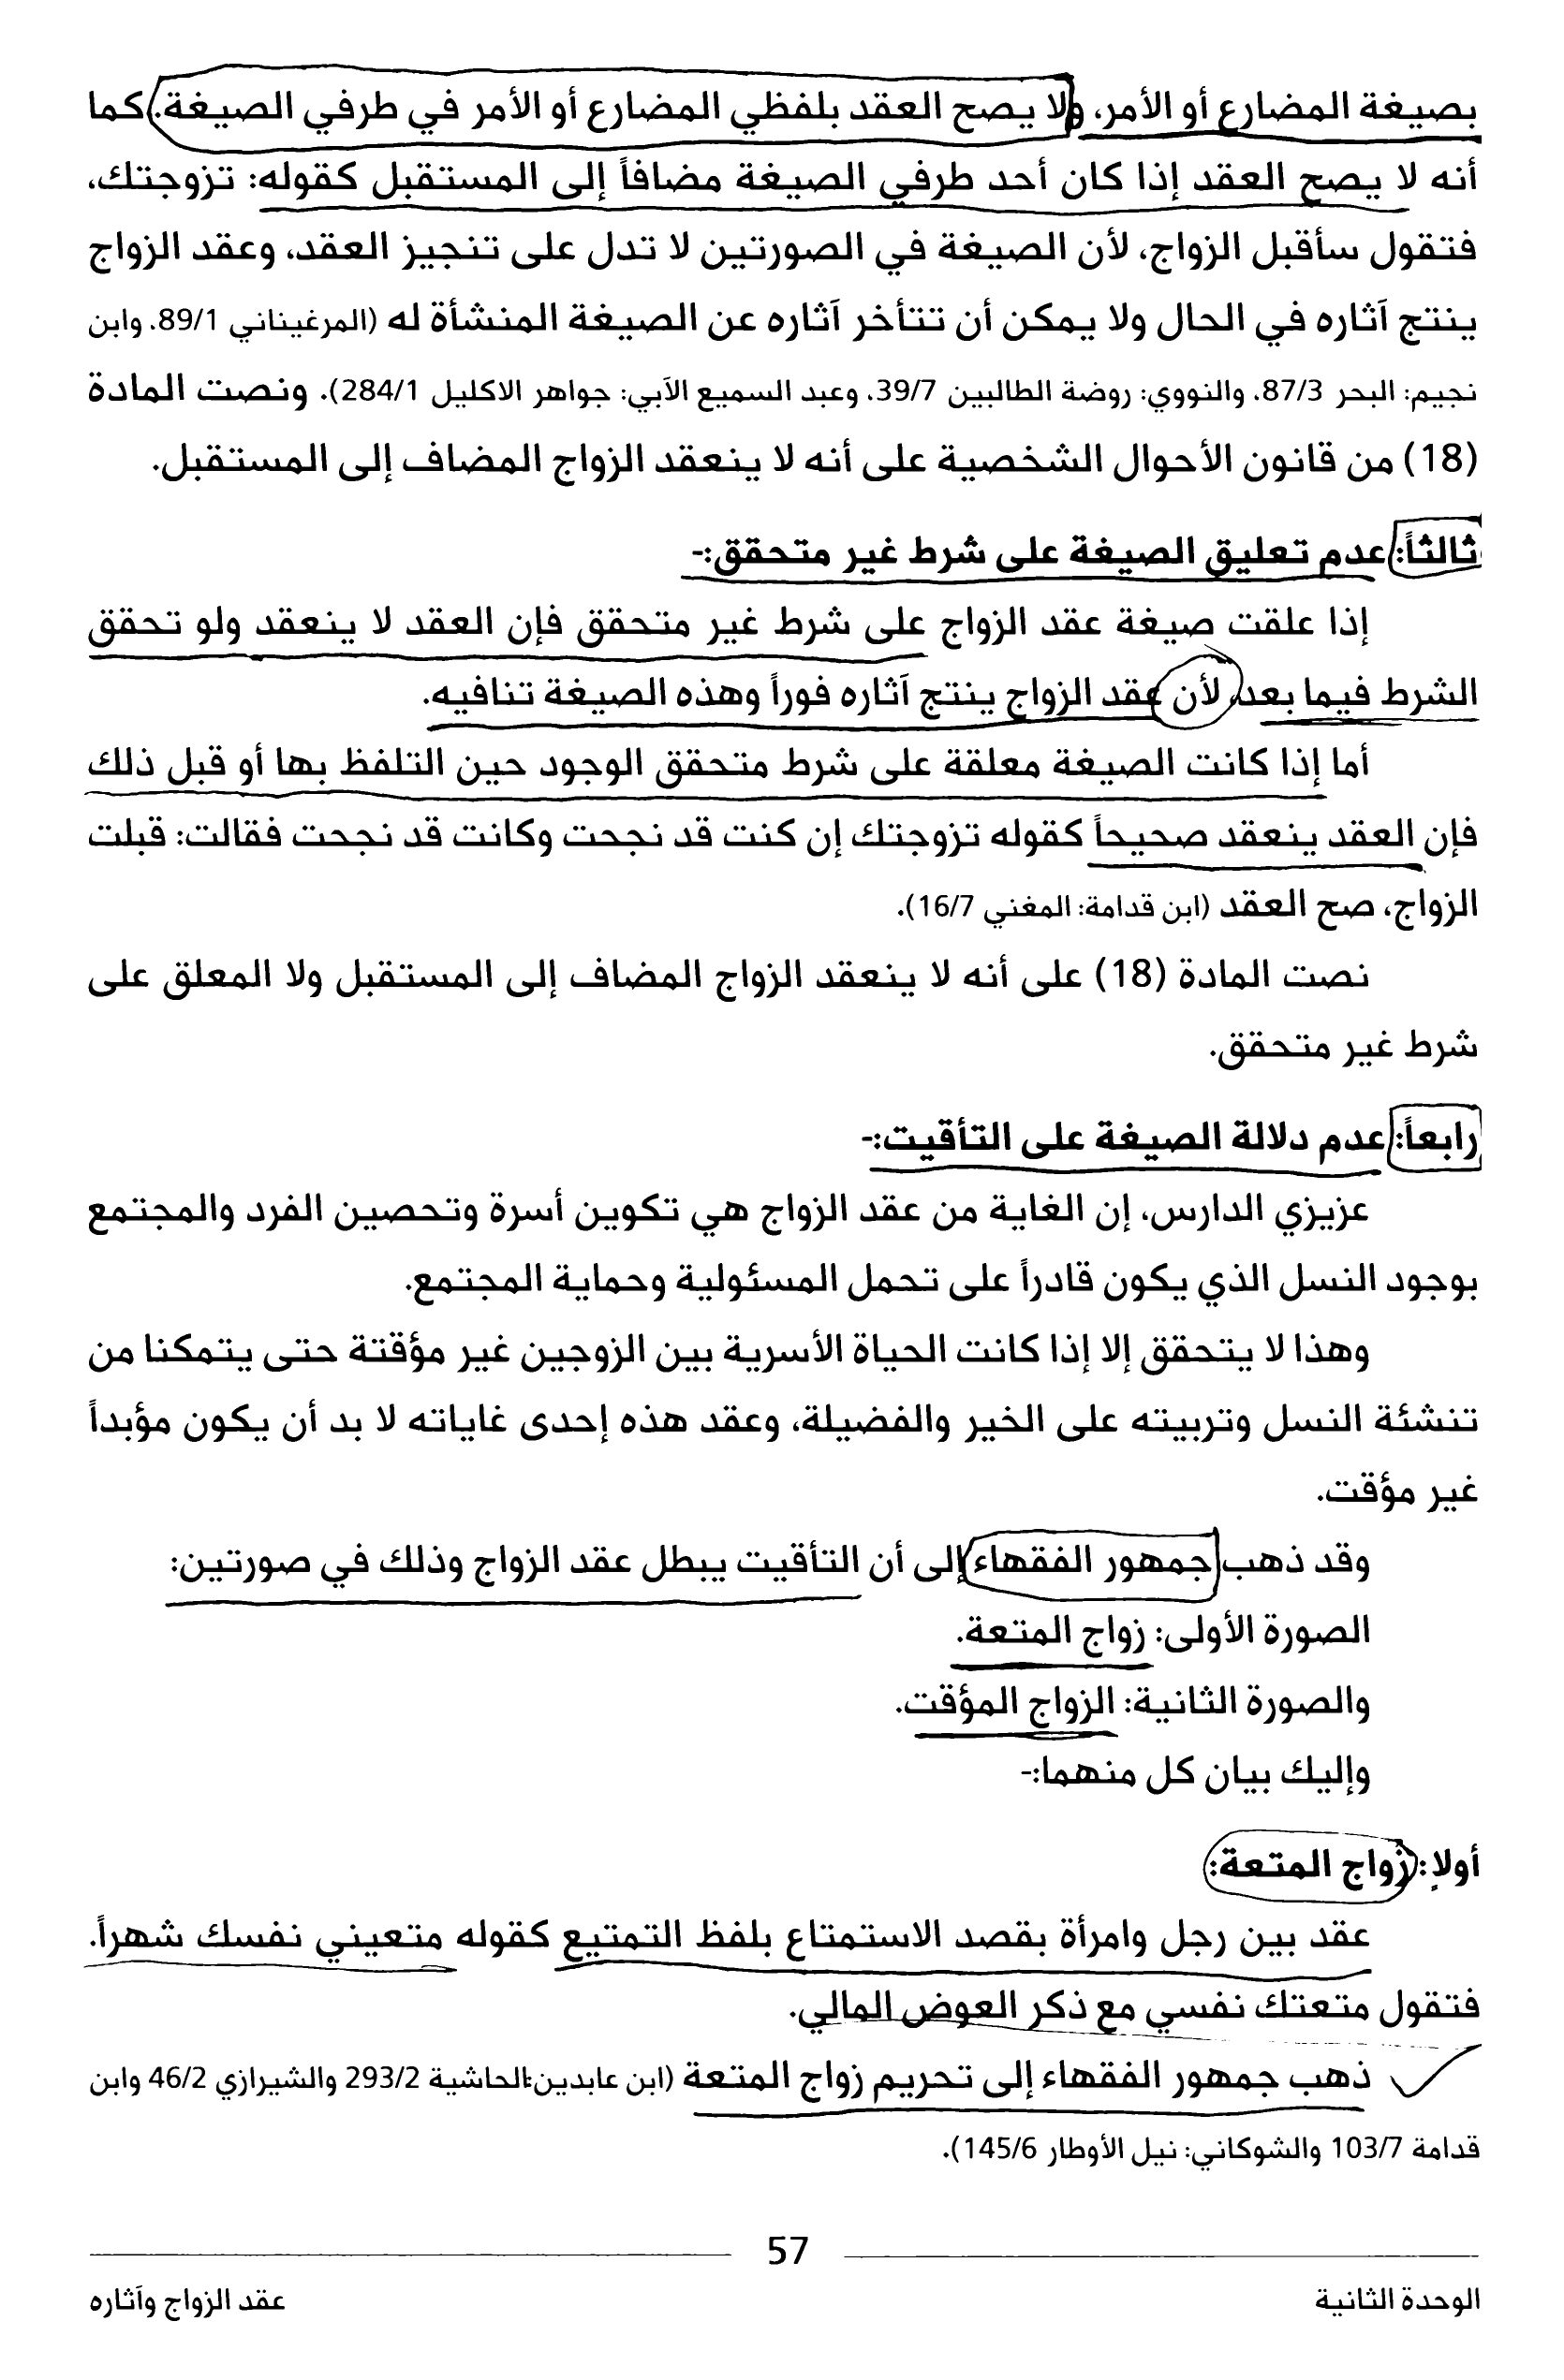 بصيغة المضارع أو الأمر، ولا يصح العقد بلفظي المضارع أو الأمر في طرفي الصيغة. كما
أنه لا يصح العقد إذا كان أحد طرفي الصيغة مضافاً إلى المستقبل كقوله: تزوجتك،
فتقول سأقبل الزواج، لأن الصيغة في الصورتين لا تدل على تنجيز العقد، وعقد الزواج
ينتج آثاره في الحال ولا يمكن أن تتأخر آثاره عن الصيغة المنشأة له (المرغيناني 89/1، وابن
نجيم: البحر 87/3، والنووي: روضة الطالبين 39/7، وعبد السميع الآبي: جواهر الاكليل 284/1). ونصت المادة
(18) من قانون الأحوال الشخصية على أنه لا ينعقد الزواج المضاف إلى المستقبل.
ثالثاً: عدم تعليق الصيغة على شرط غير متحقق:-
إذا علقت صيغة عقد الزواج على شرط غير متحقق فإن العقد لا ينعقد ولو تحقق
الشرط فيما بعد، لأن عقد الزواج ينتج آثاره فوراً وهذه الصيغة تنافيه.
أما إذا كانت الصيغة معلقة على شرط متحقق الوجود حين التلفظ بها أو قبل ذلك
فإن العقد ينعقد صحيحاً كقوله تزوجتك إن كنت قد نجحت وكانت قد نجحت فقالت: قبلت
الزواج، صح العقد (ابن قدامة: المغني 16/7).
نصت المادة (18) على أنه لا ينعقد الزواج المضاف إلى المستقبل ولا المعلق على
شرط غير متحقق.
رابعاً: عدم دلالة الصيغة على التأقيت:-
عزيزي الدارس، إن الغاية من عقد الزواج هي تكوين أسرة وتحصين الفرد والمجتمع
بوجود النسل الذي يكون قادراً على تحمل المسئولية وحماية المجتمع.
وهذا لا يتحقق إلا إذا كانت الحياة الأسرية بين الزوجين غير مؤقتة حتى يتمكنا من
تنشئة النسل وتربيته على الخير والفضيلة، وعقد هذه إحدى غاياته لا بد أن يكون مؤبداً
غير مؤقت.
وقد ذهب جمهور الفقهاء إلى أن التأقيت يبطل عقد الزواج وذلك في صورتين:
الصورة الأولى: زواج المتعة.
والصورة الثانية: الزواج المؤقت.
وإليك بيان كل منهما:-
أولاً: زواج المتعة:
عقد بين رجل وامرأة بقصد الاستمتاع بلفظ التمتيع كقوله متعيني نفسك شهراً.
فتقول متعتك نفسي مع ذكر العوض المالي.
ذهب جمهور الفقهاء إلى تحريم زواج المتعة (ابن عابدين:الحاشية 293/2 والشيرازي 46/2 وابن
قدامة 103/7 والشوكاني: نيل الأوطار 145/6).
57
الوحدة الثانية
عقد الزواج وآثاره